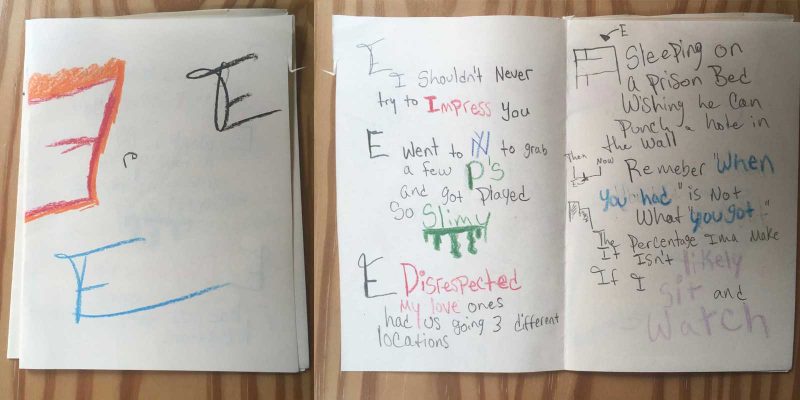 E
E
E
E
I Shouldn't Never
try to Impress you
E went to N to grab
a few P's
and got Played
So Slimy
E Disrespected
My love ones
had us going 3 different
locations
E
Sleeping on
a Prison Bed
Wishing he can
Punch a hole in
the wall
Then Now
Remeber "When
you had" is Not
What "you got"
The Percentage Ima Make
It Isn't likely
If I sit and
Watch